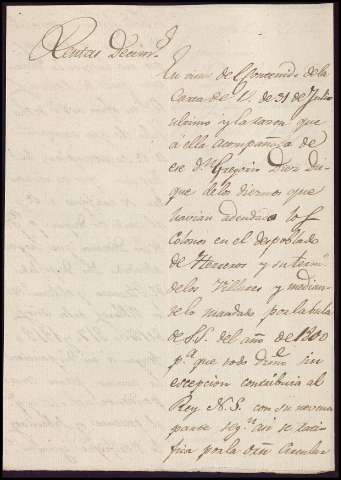 Rentas Decim.s
En vista de el contenido de la
Carta de V. de 31 de Julio
ultimo y la razon que
a ella acompaña de
ese d.n Gregorio Diez
que de los diezmos que
havian adeudado los
Colonos en el despoblado
de Herreros y su term.o
de los Villares y median-
do lo mandado por la bula
de S.S. del año de 1800
p.a que todo Diezmo sin
excepcion contribuia al
Rey N.S. con su novena
parte seg.n asi se
por la Circular